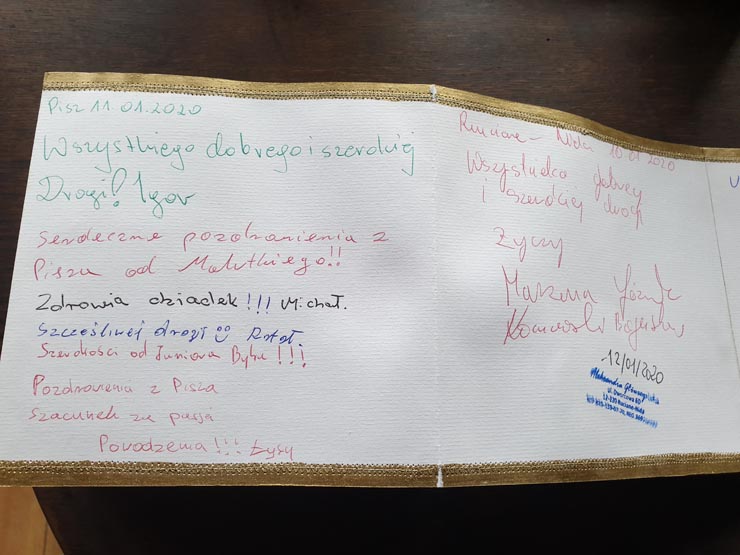 Pisz 11.01.2020
Wszystkiego dobrego i szerokiej
Drogi! Igor
Serdeczne pozdranienia z
Pisza od Malutkiego!!
Zdrowia dziadek!!! Michał.
Szczęśliwej drogi Rafał.
Szerokości od Juniora Byku!!!
Pozdrowienia z Pisza
Szacunek za pasja
Powodzenia!!! Łysy
Ruciane - Nida 10 01 2020
Wszystkiego dobrego
i szerokiej drogi
Życzy
Marzena Józef
Bogusław
12/01/2020
Aleksandra
ul. Dworcowa
12-220 Ruciane-Nida
U